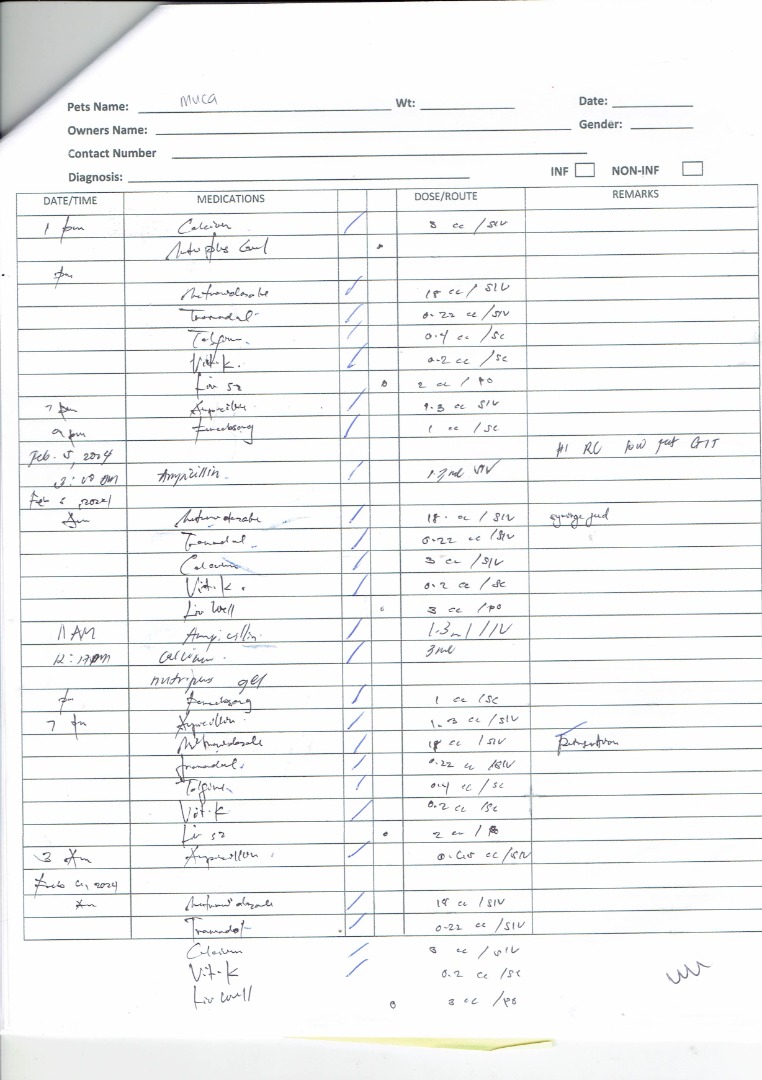 Pets Name: Muca Wt: Date:
Owners Name: Gender:
Contact Number
Diagnosis: INF NON-INF
DATE/TIME MEDICATIONS DOSE/ROUTE REMARKS
1 pm Calcium 3 cc / SIV
Nutriplus Gel
pm
Metronidazole 18 cc / SIV
Tramadol 0.22 cc / SIV
Tolfine 0.4 cc / SC
Vit. K 0.2 cc / SC
Liv 52 2 cc / PO
7 pm Ampicillin 1.3 cc SIV
9 pm 1 cc / SC
Feb. 5, 2024
3:00 am Ampicillin 1.3 ml SIV
Feb 5, 2024
Am Metronidazole 18 cc / SIV syringe feed
Tramadol 0.22 cc / SIV
Calcium 3 cc / SIV
Vit. K. 0.2 cc / SC
Liv Well 3 cc / PO
11 AM Ampicillin 1.3 ml / IV
12:13pm Calcium 3ml
nutriplus gel
pm 1 cc / SC
7 pm Ampicillin 1.3 cc / SIV
Metronidazole 18 cc / SIV
Tramadol 0.22 cc / SIV
Tolfine 0.4 cc / SC
Vit. K 0.2 cc / SC
Liv 52 2 cc / PO
3 Am Ampicillin cc / SIV
2024
Am Metronidazole 18 cc / SIV
Tramadol 0.22 cc / SIV
Calcium 3 cc / SIV
Vit. K 0.2 cc / SC
Liv well 3 cc / PO